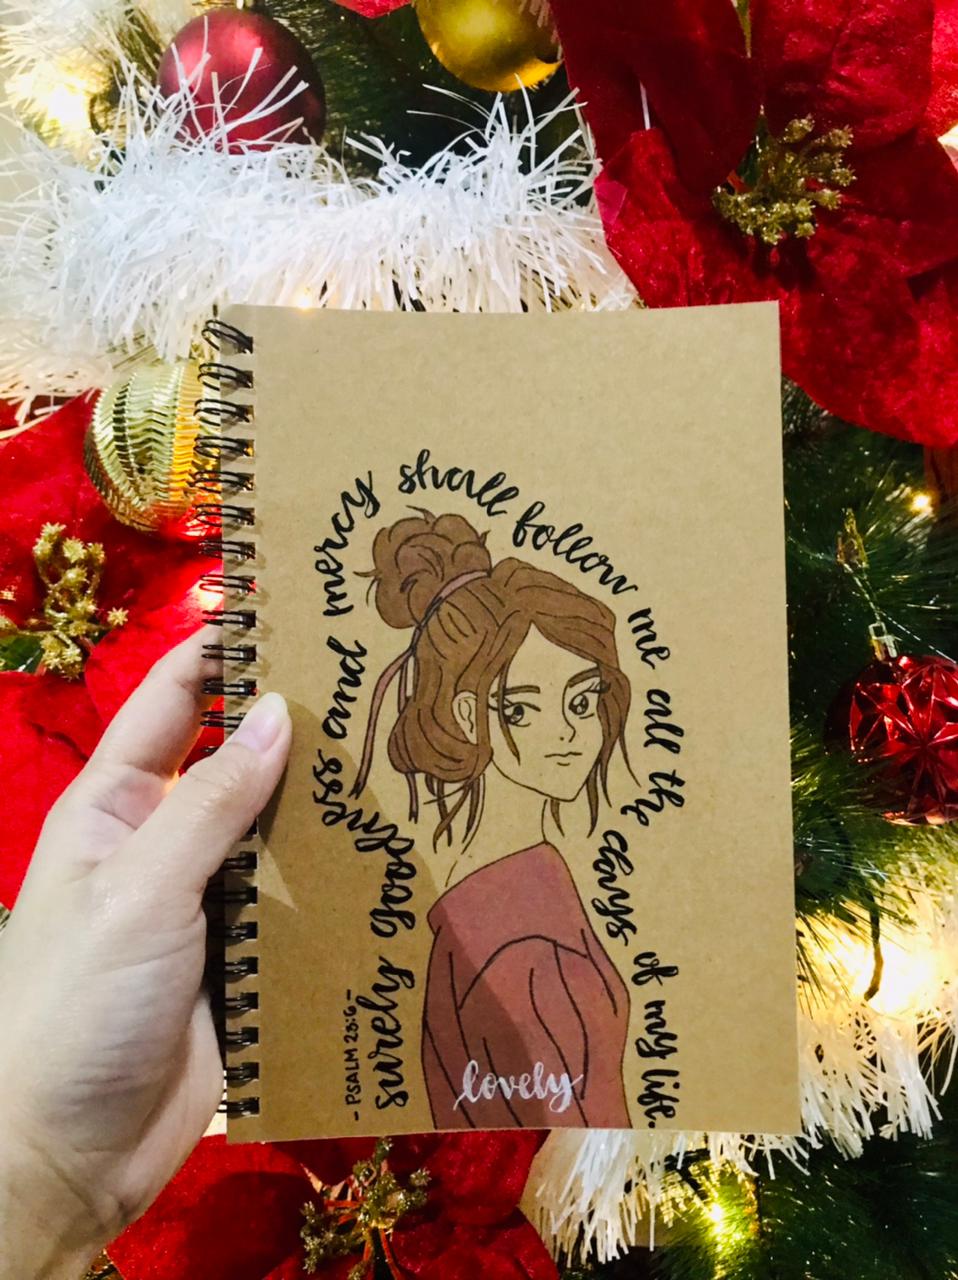 surely goodness and mercy shall follow me all the days of my life.
- PSALM 23:6 -
lovely